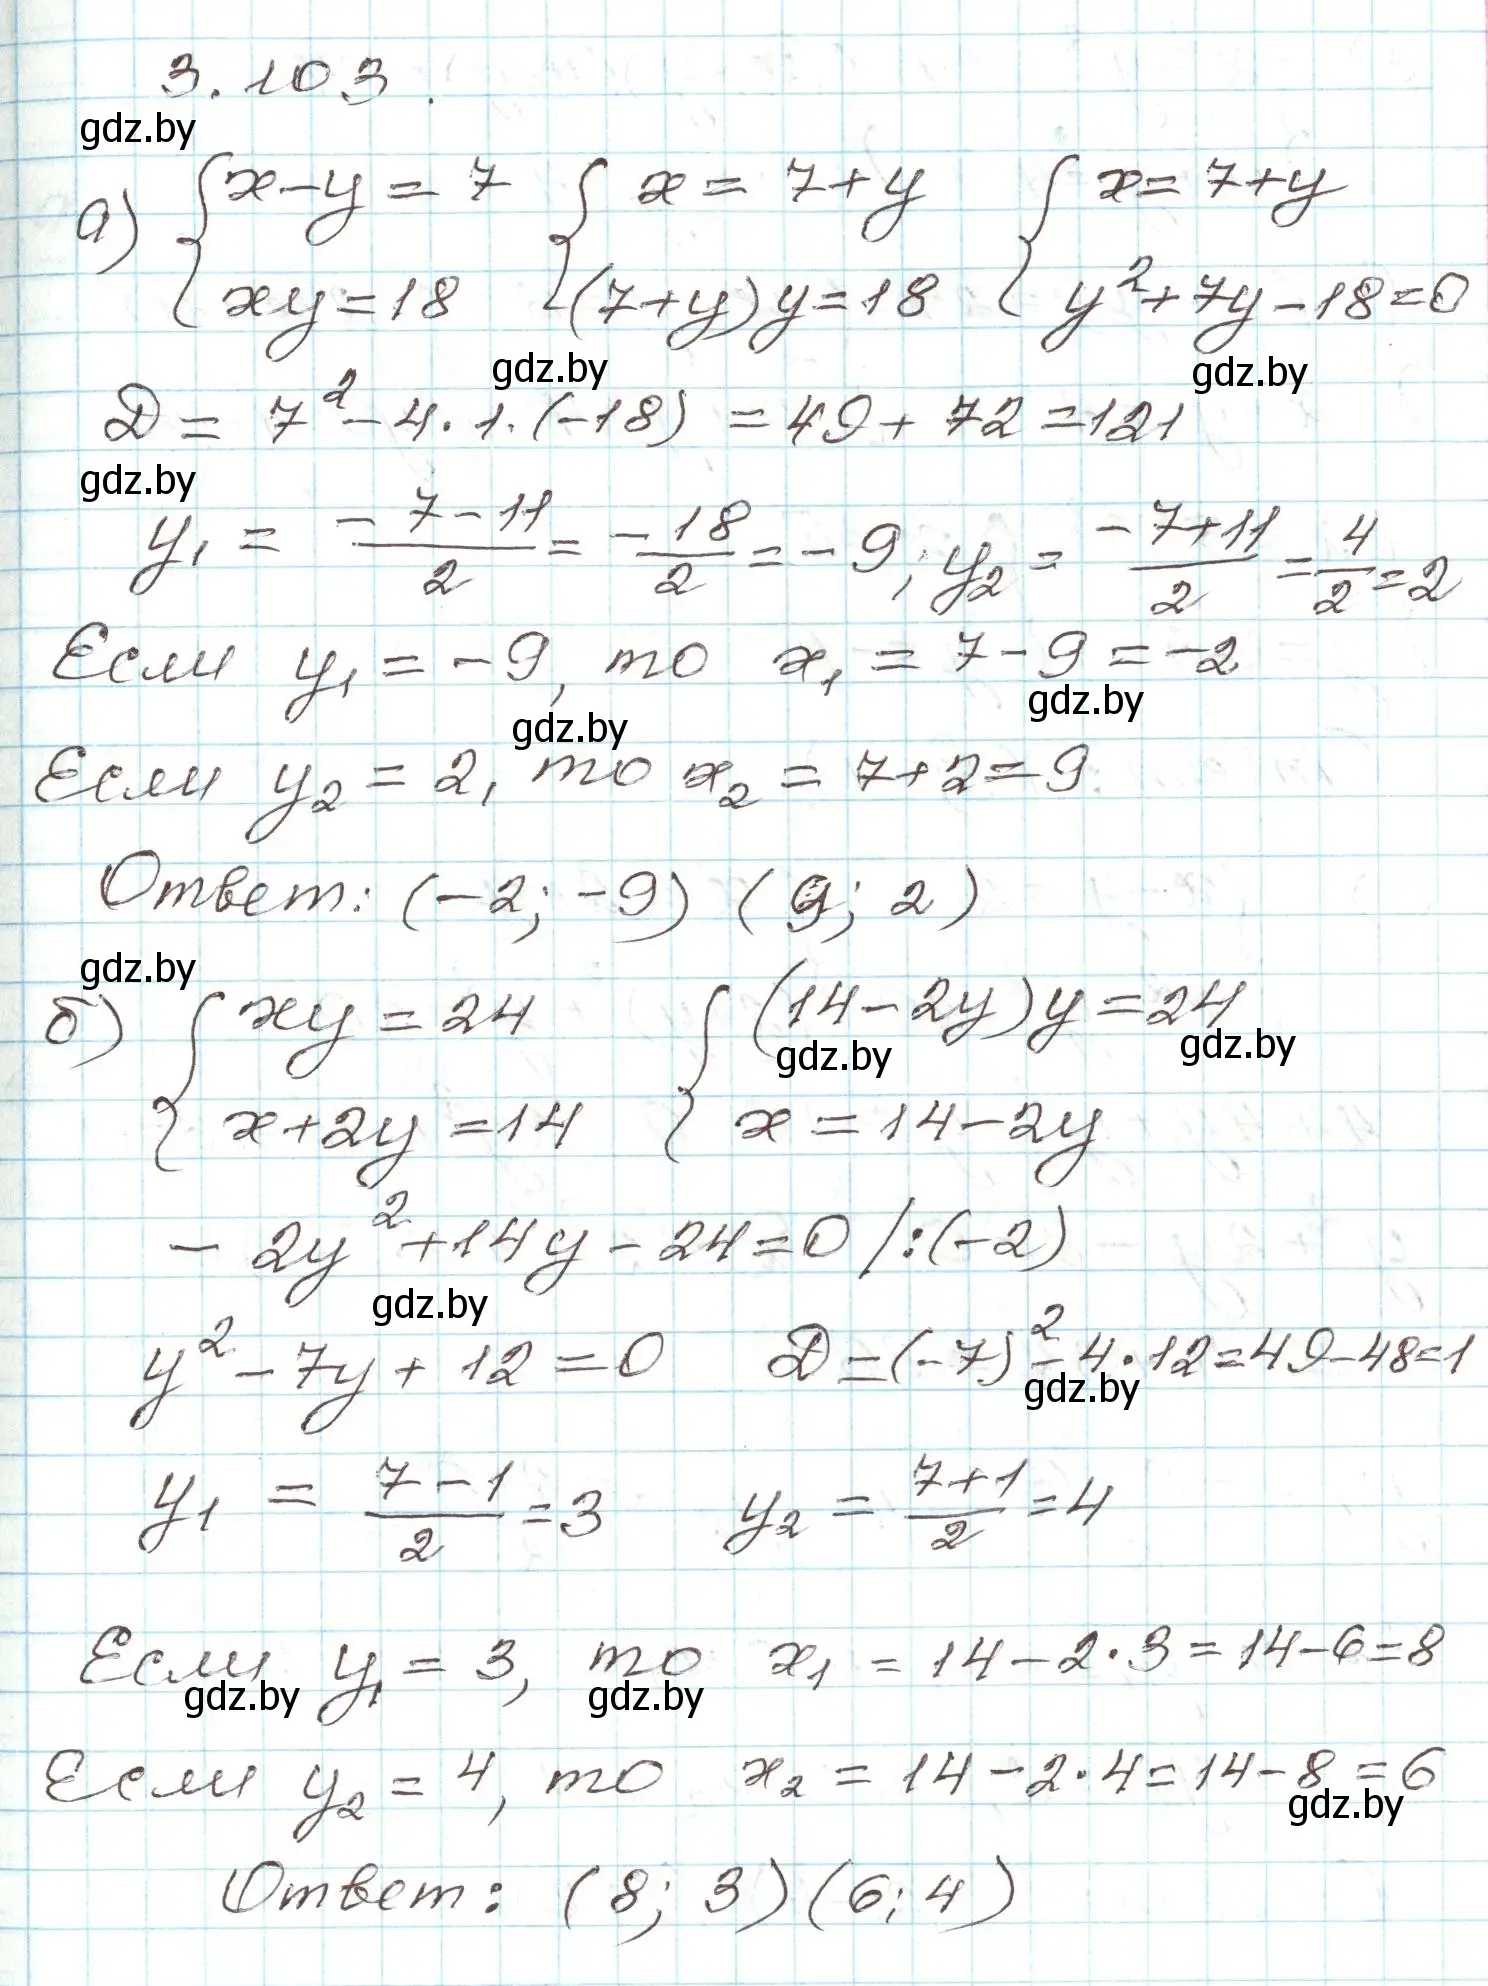 3.103.
gdz.by
а) { x-y=7 { x=7+y { x=7+y
xy=18 (7+y)y=18 y²+7y-18=0
gdz.by gdz.by
D = 7²-4·1·(-18) = 49+72=121
gdz.by
y₁ = (-7-11)/2 = -18/2 = -9; y₂ = (-7+11)/2 = 4/2 = 2
Если y₁ = -9, то x₁ = 7-9 = -2
gdz.by gdz.by
Если y₂ = 2, то x₂ = 7+2=9
Ответ: (-2; -9) (9; 2)
gdz.by
б) { xy=24 { (14-2y)y=24
gdz.by gdz.by
x+2y=14 x=14-2y
-2y²+14y-24=0 /:(-2)
gdz.by
y²-7y+12=0 D=(-7)²-4·12=49-48=1
gdz.by
y₁ = (7-1)/2 = 3 y₂ = (7+1)/2 = 4
Если y₁ = 3, то x₁ = 14-2·3=14-6=8
gdz.by gdz.by
Если y₂ = 4, то x₂ = 14-2·4=14-8=6
gdz.by
Ответ: (8; 3) (6; 4)